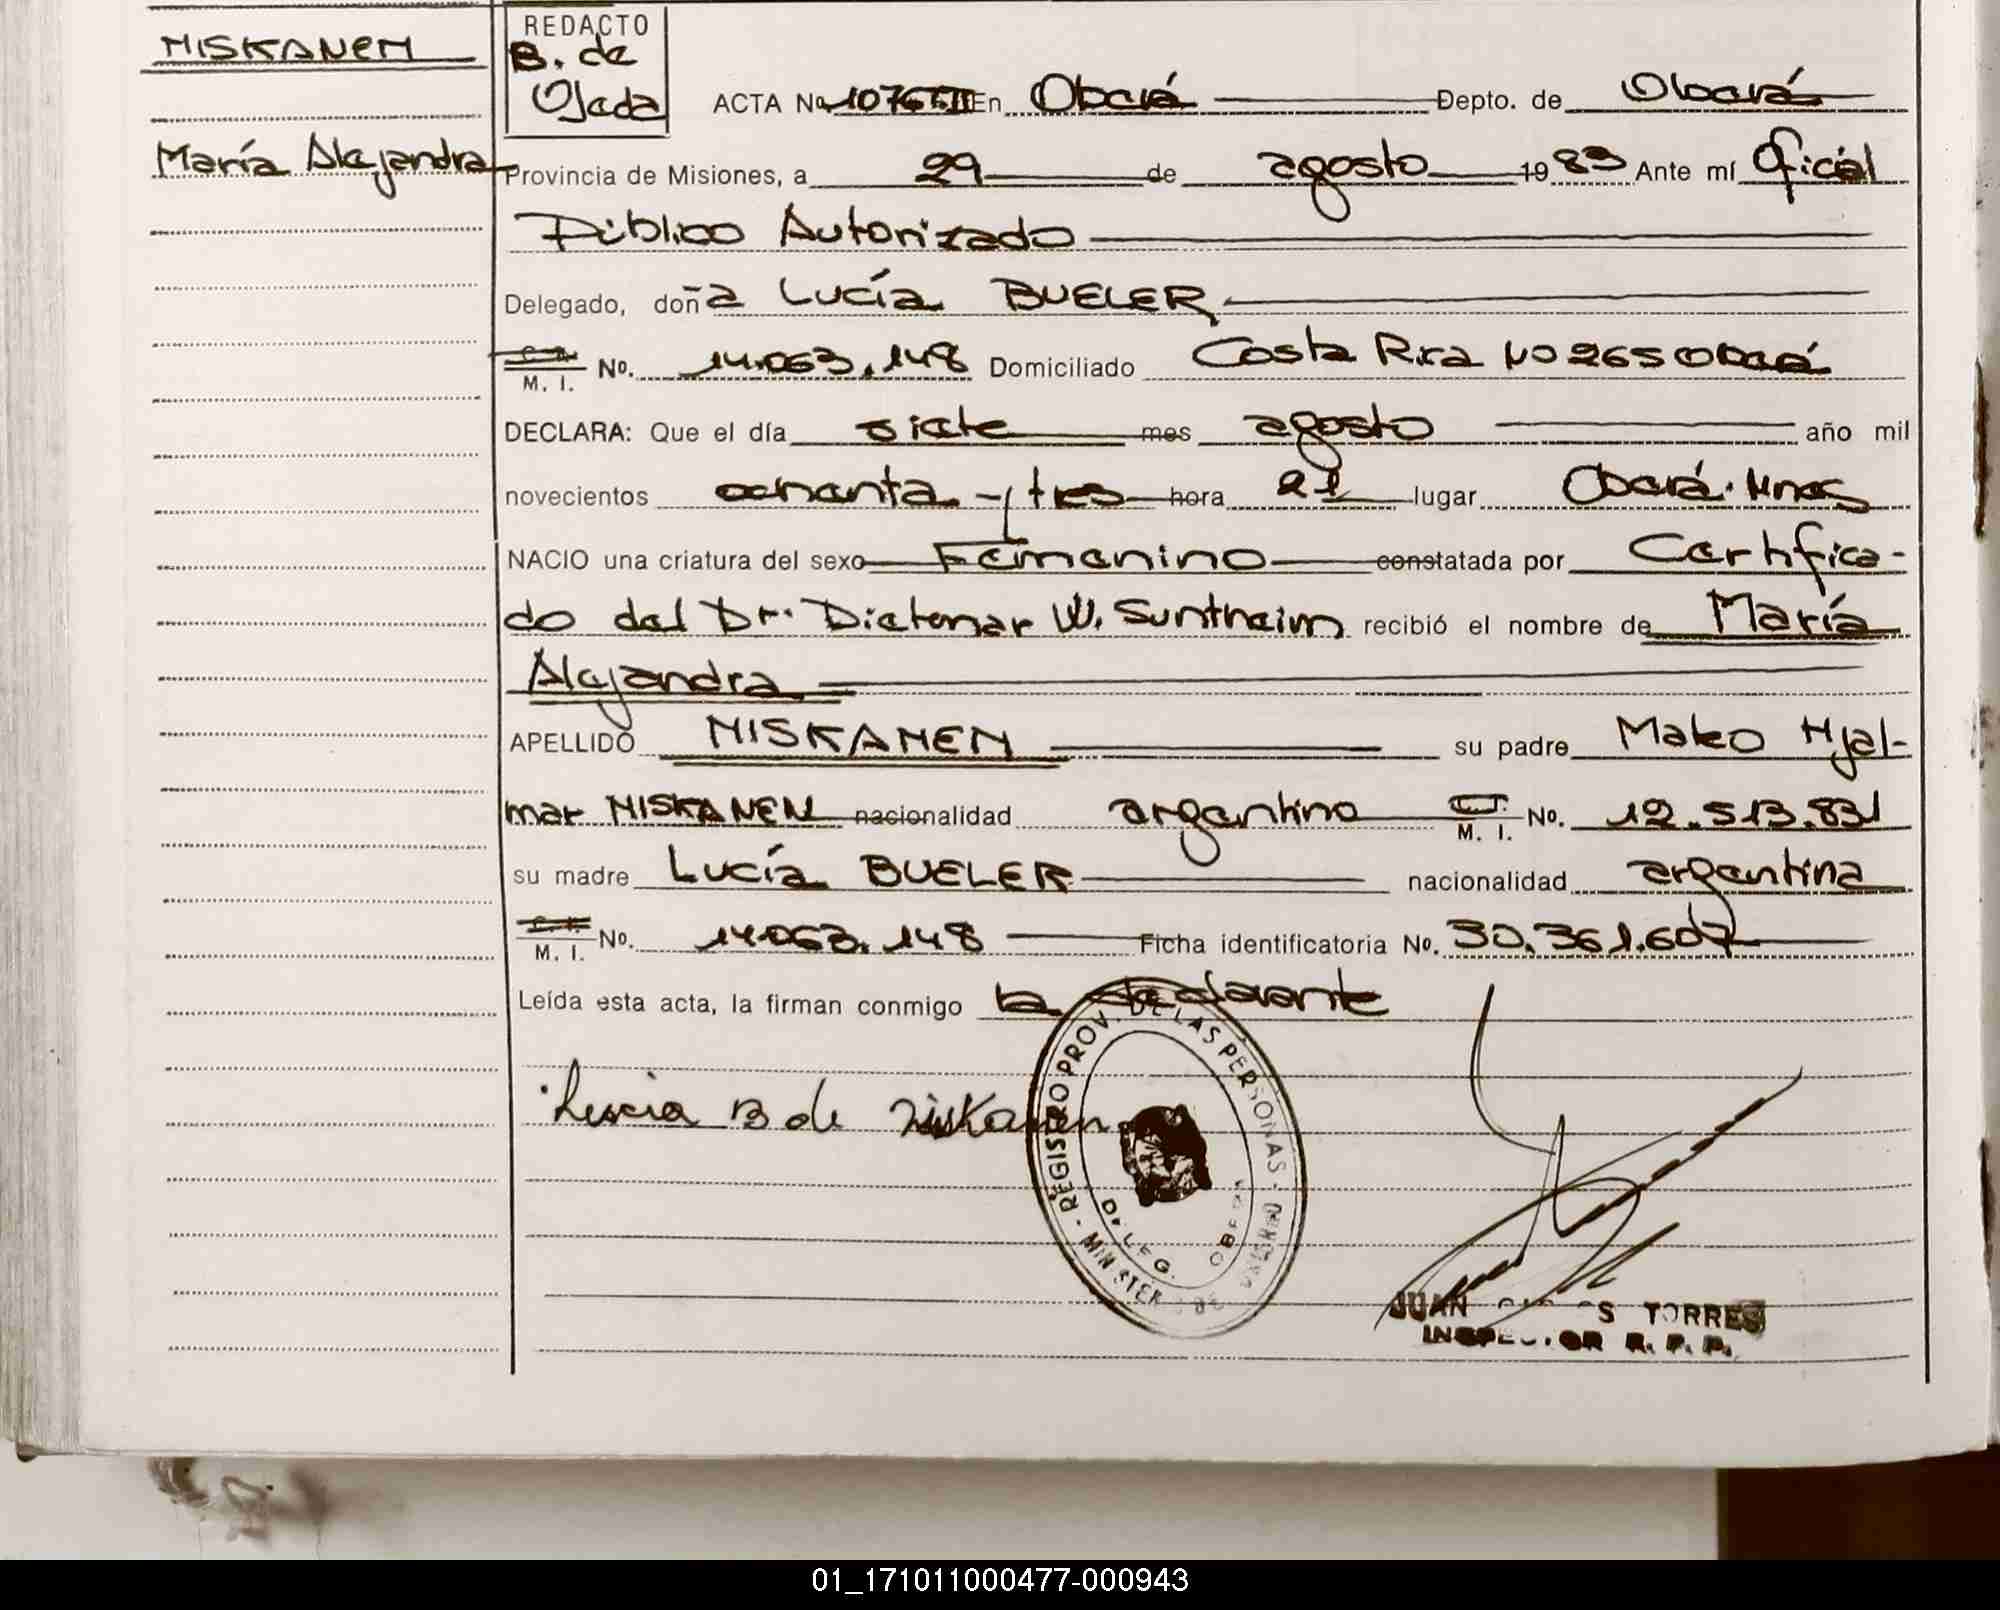 NISKANEN
María Alejandra
REDACTO
B. de
Ojeda
ACTA No 1076 TII En Oberá Depto. de Oberá
Provincia de Misiones, a 29 de agosto 1983 Ante mí Oficial
Público Autorizado
Delegado, doña Lucía BUELER
M. I. No. 14.063.148 Domiciliado Costa Rica No 265 Oberá
DECLARA: Que el día siete mes agosto año mil
novecientos ochenta y tres hora 21 lugar Oberá. Mnes
NACIO una criatura del sexo Femenino constatada por Certifica-
do del Dr. Dietemar W. Suntheim recibió el nombre de María
Alejandra
APELLIDO NISKANEN su padre Hjal-
mar NISKANEN nacionalidad argentino M. I. No. 12.513.831
su madre Lucía BUELER nacionalidad argentina
M. I. No. 14.063.148 Ficha identificatoria No. 30.361.607
Leída esta acta, la firman conmigo la declarante
Lucia B de Niskanen
REGISTRO PROV. DE LAS PERSONAS - MINISTER
DELEG. OBERA
JUAN CARLOS TORRES
INSPECTOR R. P. P.
01_171011000477-000943